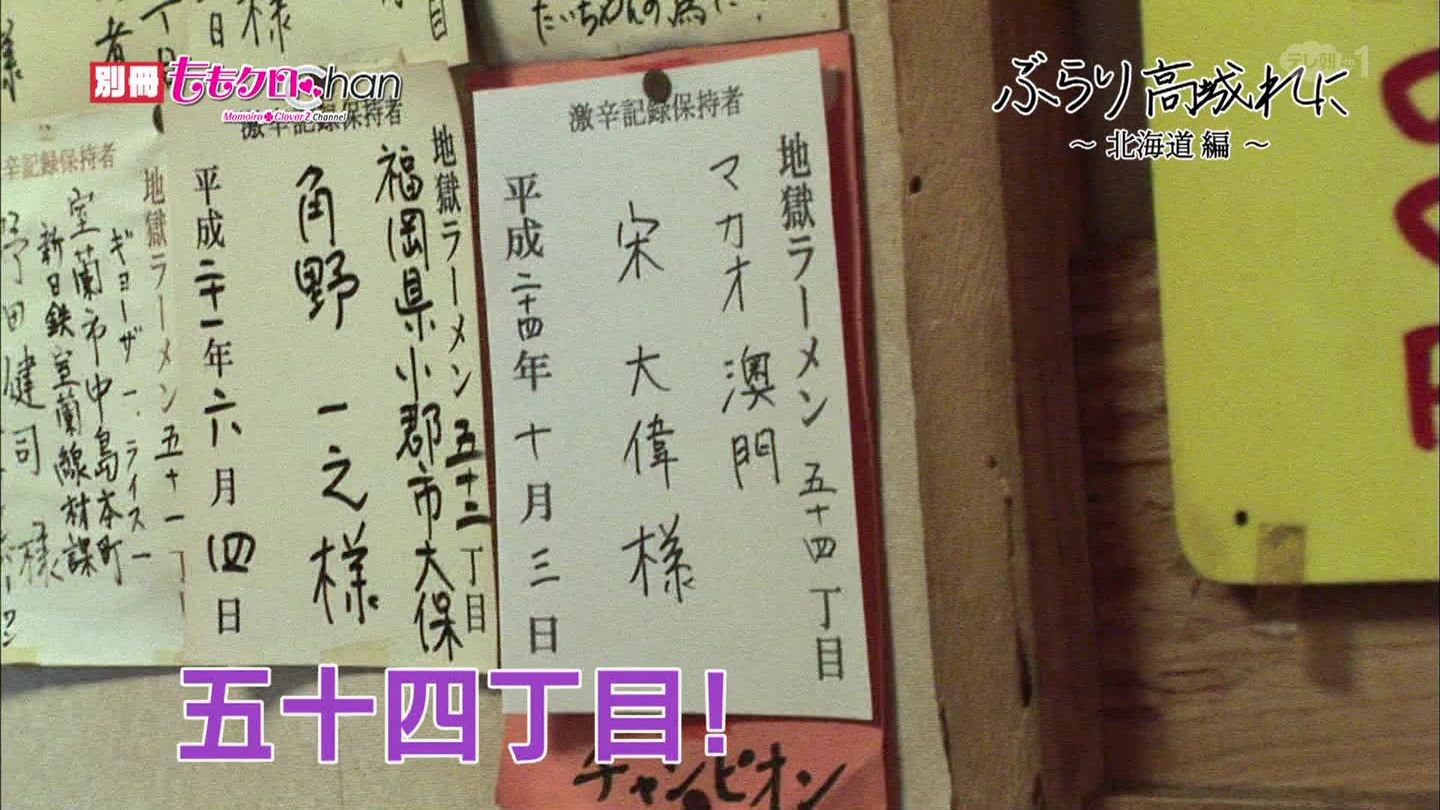 別冊ももクロChan
Momoiro Clover Z Channel
ぶらり高城れに
～ 北海道 編 ～
テレ朝ch1
たいちゃんの為に!
激辛記録保持者
地獄ラーメン 五十四丁目
マカオ 澳門
宋 大偉様
平成二十四年十月三日
チャンピオン
激辛記録保持者
地獄ラーメン 五十三丁目
福岡県小郡市大保
角野 一之様
平成二十一年六月四日
辛記録保持者
地獄ラーメン 五十一丁
ギョーザー.ライス一
室蘭市中島本町
新日鉄室蘭線材課
健司 様
五十四丁目!